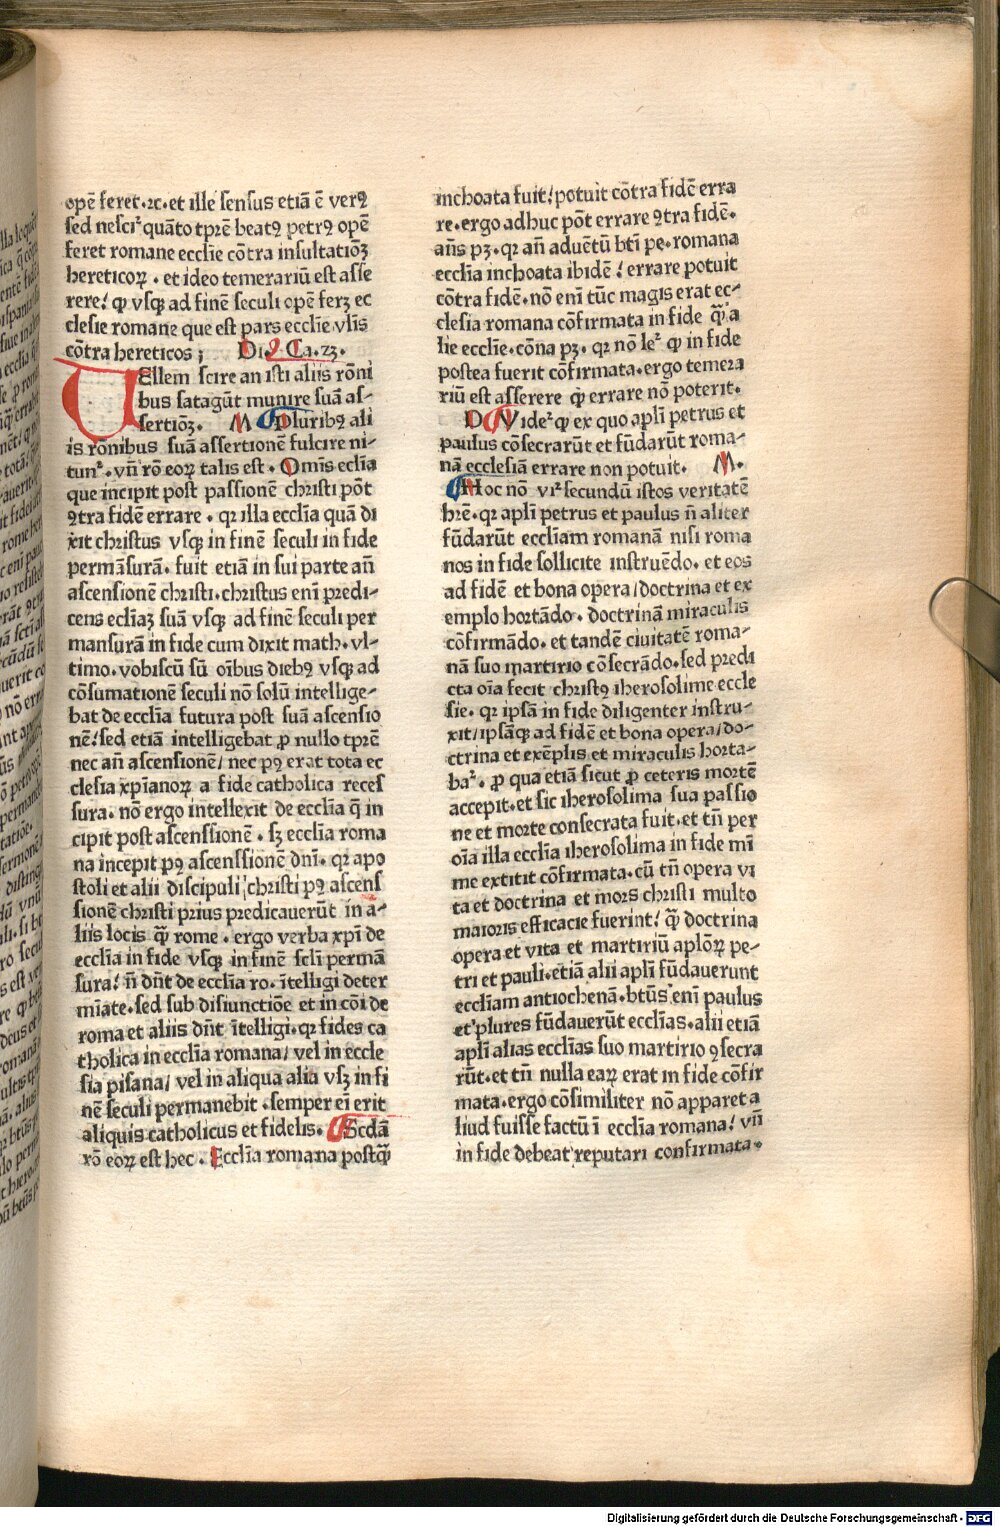 opē feret.ꝛc.et ille sensus etiā ē verꝰ
sed nescit᷑ quāto tp̄re beatꝰ petrꝰ opē
feret romane eccl̄ie cōtra insultatiōꝫ
hereticoꝝ . et ideo temerariū est asse
rere/ ꝙ vsqꝫ ad finē seculi opē ferꝫ ec
clesie romane que est pars eccl̄ie vl̄is
cōtra hereticos ; Di. Ca.23.
UEllem scire an isti aliis rōni
bus satagūt munire suā as-
sertiōꝫ. M Pluribꝰ ali
is rōnibus suā assertionē fulcire ni-
tunt᷑. vn̄ rō eoꝝ talis est . Omīs ecl̄ia
que incipit post passionē christi pōt
ꝯtra fidē errare . qꝛ illa eccl̄ia quā di
xit christus vsqꝫ in finē seculi in fide
permāsurā. fuit etiā in sui parte an̄
ascensionē christi. christus enī predi-
cens ecl̄iaꝫ suā vsqꝫ ad finē seculi per
mansurā in fide cum dixit math. vl-
timo. vobiscū sū oībus diebꝰ vsqꝫ ad
cōsumationē seculi nō solū intellige-
bat de eccl̄ia futura post suā ascensio
nē/ sed etiā intelligebat ꝙ nullo tp̄re
nec an̄ ascensionē/ nec pꝰ erat tota ec
clesia xp̄ianoꝝ a fide catholica reces
sura. nō ergo intellexit de eccl̄ia q̄ in
cipit post ascenssionē . sꝫ eccl̄ia roma
na incepit pꝰ ascenssionē dn̄i. qꝛ apo
stoli et alii discipuli christi pꝰ ascens
sionē christi prius predicauerūt in a-
liis locis q̄ꝫ rome . ergo verba xp̄i de
ecclīa in fide vsqꝫ in finē scl̄i permā
sura/ n̄ dn̄t de eccl̄ia ro. ītelligi deter
mīate. sed sub disiunctiōe et in cōi de
roma et aliis dn̄t ītelligi. qꝛ fides ca
tholica in eccl̄ia romana/ vel in eccle
sia pisana/ vel in aliqua alia vsqꝫ in fi
nē seculi permanebit . semper eī erit
aliquis catholicus et fidelis. Scdā
rō eoꝝ est hec . Eccl̄ia romana postq̄ꝫ
inchoata fuit/ potuit cōtra fidē erra
re. ergo adhuc pōt errare ꝯtra fidē.
an̄s pꝫ. qꝛ an̄ aduētū bt̄i pe. romana
eccl̄ia inchoata ibidē / errare potuit
cōtra fidē. nō enī tūc magis erat ec-
clesia romana cōfirmata in fide q̄ꝫ a
lie eccl̄ie. cōna pꝫ. qꝛ nō let᷑ ꝙ in fide
postea fuerit cōfirmata. ergo temera
riū est asserere ꝙ errare nō poterit.
D Videt᷑ ꝙ ex quo apl̄i petrus et
paulus cōsecrarūt et fūdarūt roma-
nā ecclesiā errare non potuit. M.
Hoc nō vr̄ secundū istos veritatē
hr̄e. qꝛ apl̄i petrus et paulus n̄ aliter
fūdarūt eccl̄iam romanā nisi roma
nos in fide sollicite instruēdo. et eos
ad fidē et bona opera/ doctrina et ex
emplo hortādo. doctrinā miraculis
cōfirmādo. et tandē ciuitatē roma-
nā suo martirio cōsecrādo. sed predi
cta oīa fecit christꝰ iherosolime eccle
sie. qꝛ ipsā in fide diligenter instru-
xit/ ipsāqꝫ ad fidē et bona opera/ do-
ctrina et exēplis et miraculis horta-
bat᷑. ꝓ qua etiā sicut ꝓ ceteris mortē
accepit. et sic iherosolima sua passio
ne et morte consecrata fuit. et tn̄ per
oīa illa eccl̄ia iherosolima in fide mī
me extitit cōfirmata. cū tn̄ opera vi
ta et doctrina et mors christi multo
maioris efficacie fuerint/ q̄ꝫ doctrina
opera et vita et martiriū apl̄oꝝ pe-
tri et pauli. etiā alii apl̄i fūdauerunt
eccl̄iam antiochenā. bt̄us enī paulus
et plures fūdauerūt eccl̄ias. alii etiā
apl̄i alias eccl̄ias suo martirio ꝯsecra
rūt. et tn̄ nulla eaꝝ erat in fide cōfir
mata. ergo cōsimiliter nō apparet a
liud fuisse factū ī eccl̄ia romana/ vn̄
in fide debeat reputari confirmata.
Digitalisierung gefördert durch die Deutsche Forschungsgemeinschaft - DFG